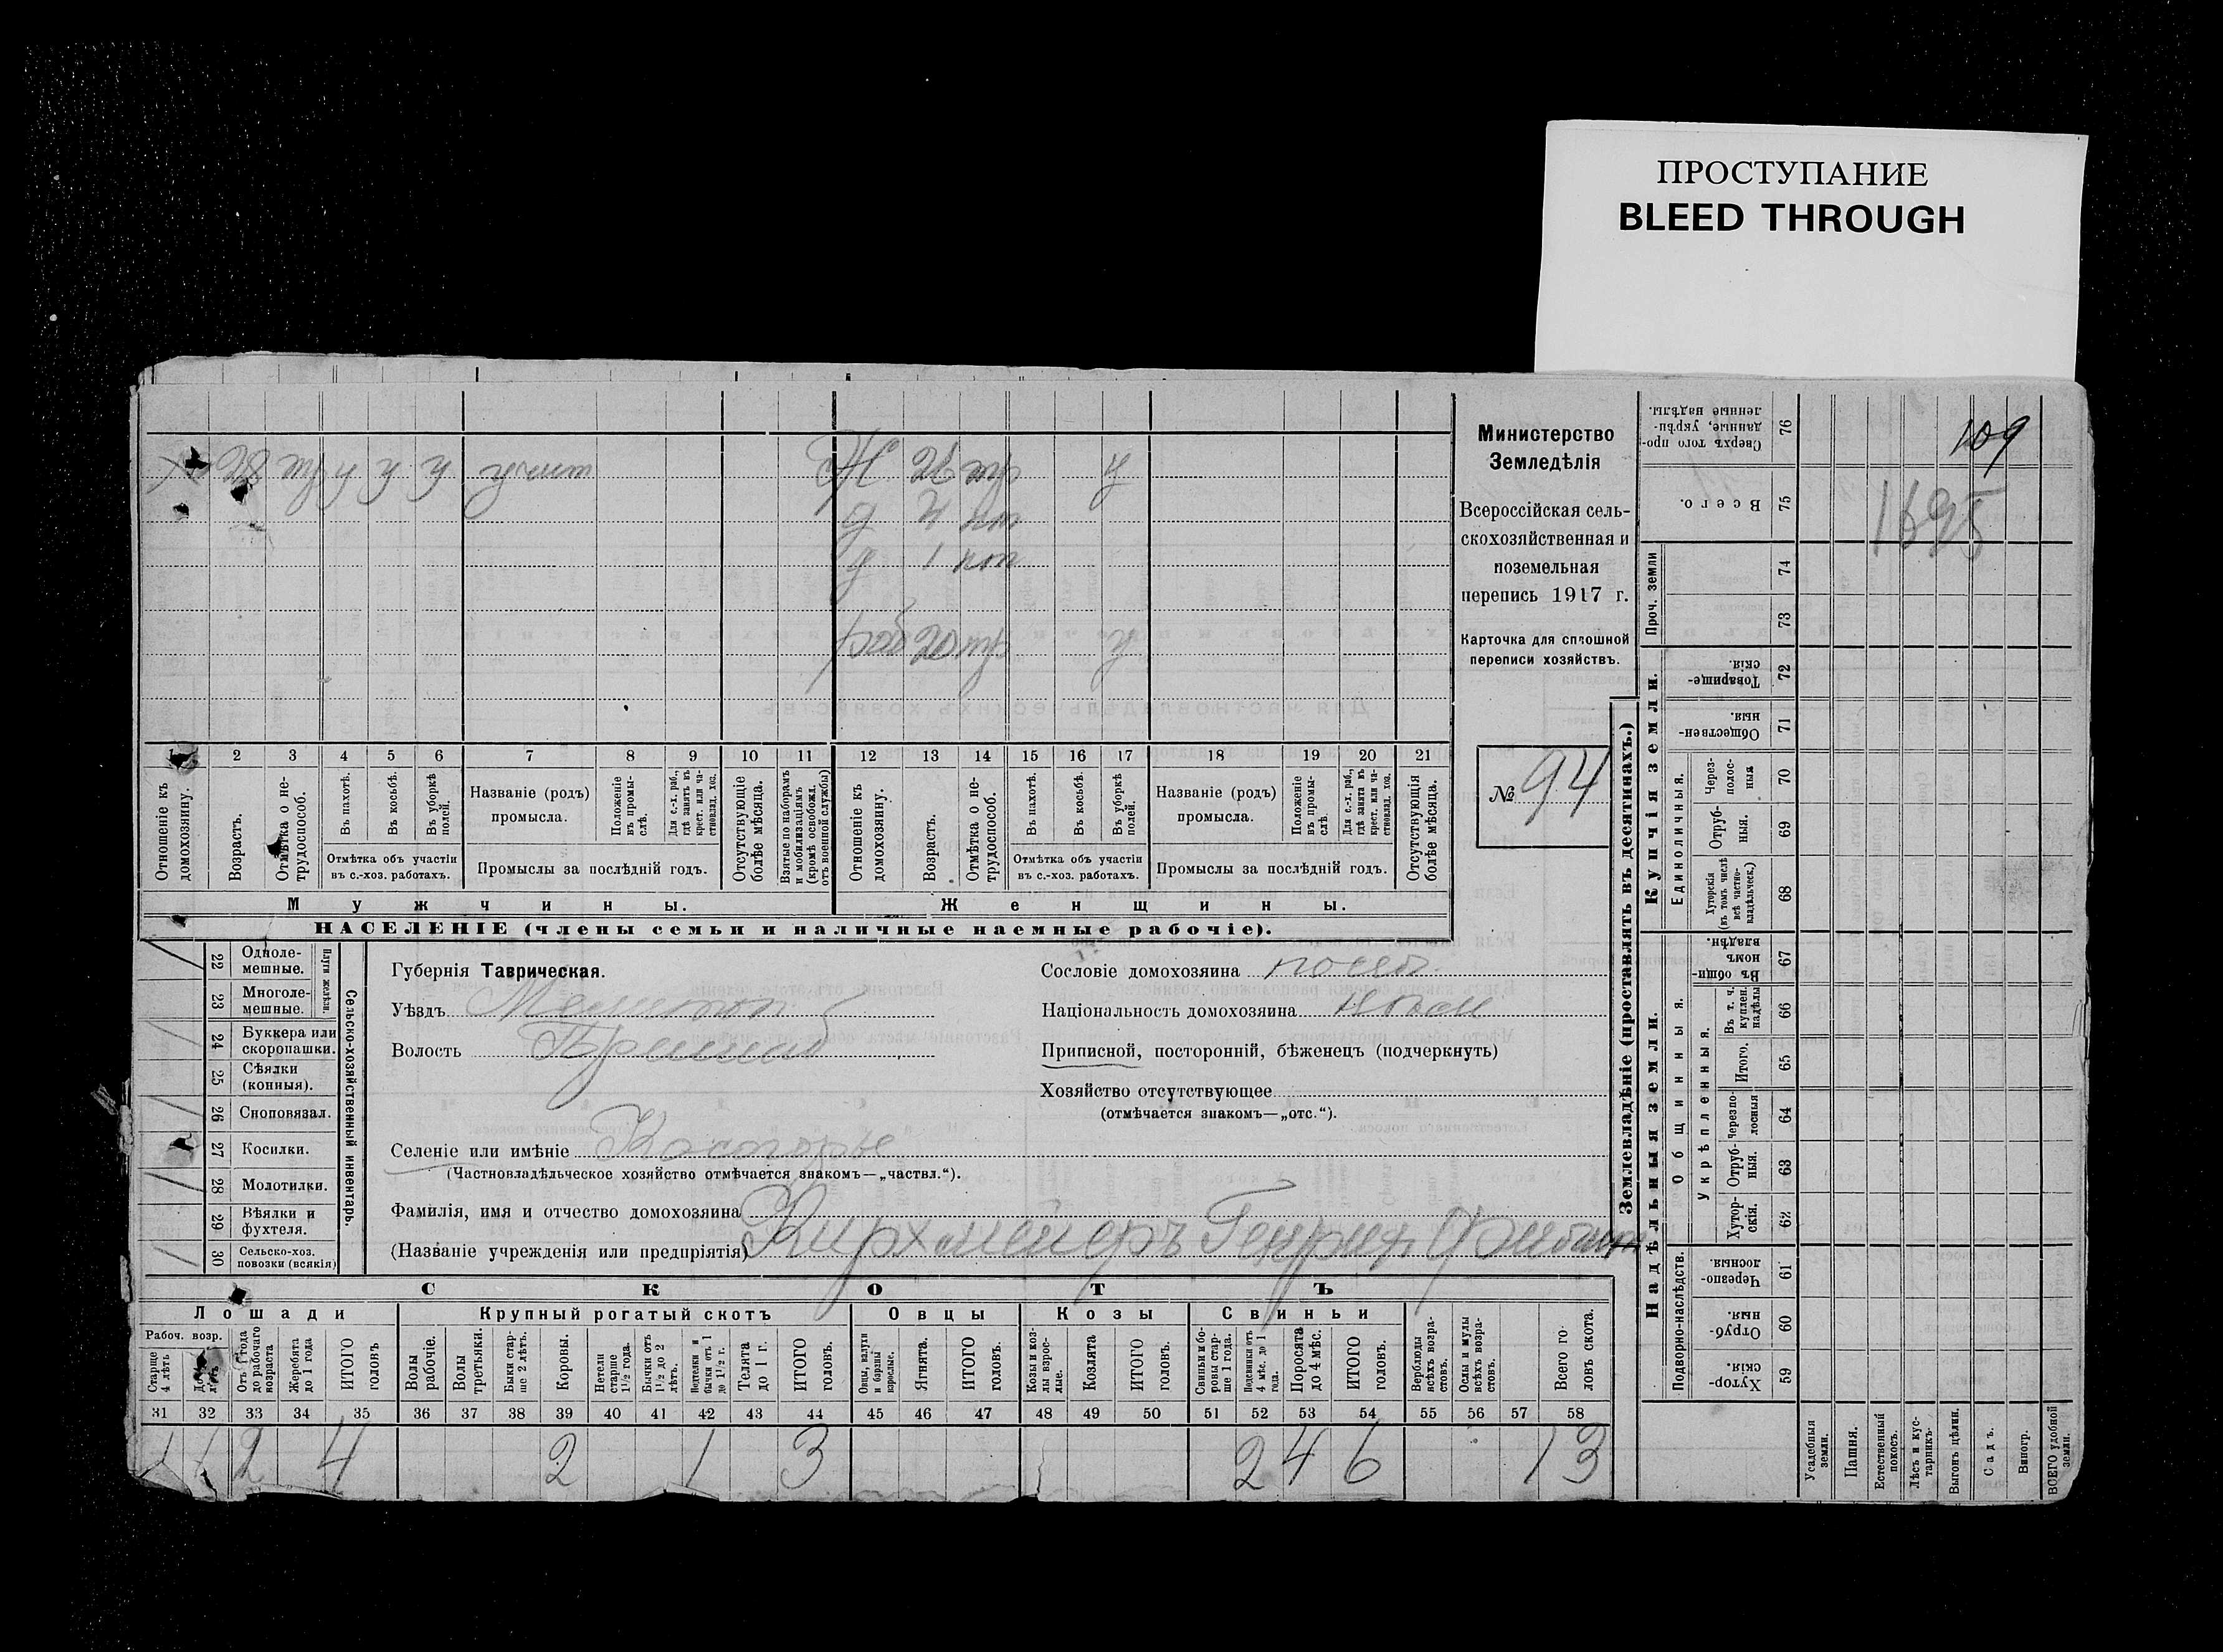 ПРОСТУПАНИЕ
BLEED THROUGH
109
1695
Министерство
Земледѣлія
Всероссійская сель-
скохозяйственная и
поземельная
перепись 1917 г.
Карточка для сплошной
переписи хозяйствъ.
№ 94
1 2 3 4 5 6 7 8 9 10 11 12 13 14 15 16 17 18 19 20 21
Отношеніе къ домохозяину.
Возрастъ.
Отмѣтка о не-трудоспособ.
Въ пахотѣ.
Въ косьбѣ.
Въ уборкѣ полей.
Отмѣтка объ участіи
въ с.-хоз. работахъ.
Названіе (родъ)
промысла.
Положеніе въ промы-слѣ.
Для с.-х. раб., гдѣ занятъ въ крест. или ча-стновлад. хоз.
Промыслы за послѣдній годъ.
Отсутствующіе болѣе мѣсяца.
Взятые по наборамъ и мобилизаціямъ (кромѣ освобожд. отъ военной службы)
Отношеніе къ домохозяину.
Возрастъ.
Отмѣтка о не-трудоспособ.
Въ пахотѣ.
Въ косьбѣ.
Въ уборкѣ полей.
Отмѣтка объ участіи
въ с.-хоз. работахъ.
Названіе (родъ)
промысла.
Положеніе въ промы-слѣ.
Для с.-х. раб., гдѣ занята въ крест. или ча-стновлад. хоз.
Промыслы за послѣдній годъ.
Отсутствующія болѣе мѣсяца.
Мужчины.
Женщины.
НАСЕЛЕНІЕ (члены семьи и наличные наемные рабочіе).
22 Одноле-мешные.
23 Многоле-мешные.
Плуги желѣзн.
24 Буккера или скоропашки.
25 Сѣялки (конныя).
26 Сноповязал.
27 Косилки.
28 Молотилки.
29 Вѣялки и фухтеля.
30 Сельско-хоз. повозки (всякія)
Сельско-хозяйственный инвентарь.
Губернія Таврическая.
Уѣздъ Мелитоп
Волость Пришиб
Селеніе или имѣніе Косогорье
(Частновладѣльческое хозяйство отмѣчается знакомъ—„частвл.“).
Фамилія, имя и отчество домохозяина Кирхмейеръ Генрих
(Названіе учрежденія или предпріятія)
Сословіе домохозяина посел.
Національность домохозяина
Приписной, посторонній, бѣженецъ (подчеркнуть)
Хозяйство отсутствующее
(отмѣчается знакомъ—„отс.“).
СКОТЪ
Лошади
Крупный рогатый скотъ
Овцы
Козы
Свиньи
Рабоч. возр.
Старше 4 лѣтъ
Отъ 1 года до рабочаго возраста
Жеребята до 1 года
ИТОГО головъ
Волы рабочіе.
Волы третьяки.
Быки стар-ше 2 лѣтъ.
Коровы.
Нетели старше 1½ года.
Бычки отъ 1½ до 2 лѣтъ.
Подтелки и бычки отъ 1 до 1½ г.
Телята до 1 г.
ИТОГО головъ.
Овцы, валухи и бараны взрослые.
Ягнята.
ИТОГО головъ.
Козы и коз-лы взрос-лые.
Козлята
ИТОГО головъ.
Свиньи и бо-ровы стар-ше 1 года.
Подсвинки отъ 4 мѣс. до 1 года.
Поросята до 4 мѣс.
ИТОГО головъ.
Верблюды всѣхъ возра-стовъ.
Ослы и мулы всѣхъ возра-стовъ.
Всего го-ловъ скота.
31 32 33 34 35 36 37 38 39 40 41 42 43 44 45 46 47 48 49 50 51 52 53 54 55 56 57 58
1 1 2 4 2 1 3 2 4 6 13
Землевладѣніе (проставлять въ десятинахъ.)
Надѣльныя земли.
Купчія земли.
Проч. земли
Подворно-наслѣдств.
Общинныя.
Укрѣпленныя.
Единоличныя.
59 Хутор-скія.
60 Отруб-ныя.
61 Черезпо-лосныя.
62 Хутор-скія.
63 Отруб-ныя.
64 Черезпо-лосныя
65 Итого.
66 Въ т. ч. куплен. надѣлы
67 Въ общин-номъ владѣн.
68 Хуторскія (въ томъ числѣ всѣ частно-владѣльческ.)
69 Отруб-ныя.
70 Через-полос-ныя
71 Обществен-ныя.
72 Товарище-скія.
73
74
75 Всего.
76 Сверхъ того про-данные, укрѣп-ленные надѣлы.
Усадебныя земли.
Пашня.
Естественный покосъ.
Лѣсъ и кус-тарникъ.
Выгонъ цѣлин.
Садъ.
Виногр.
ВСЕГО удобной земли.